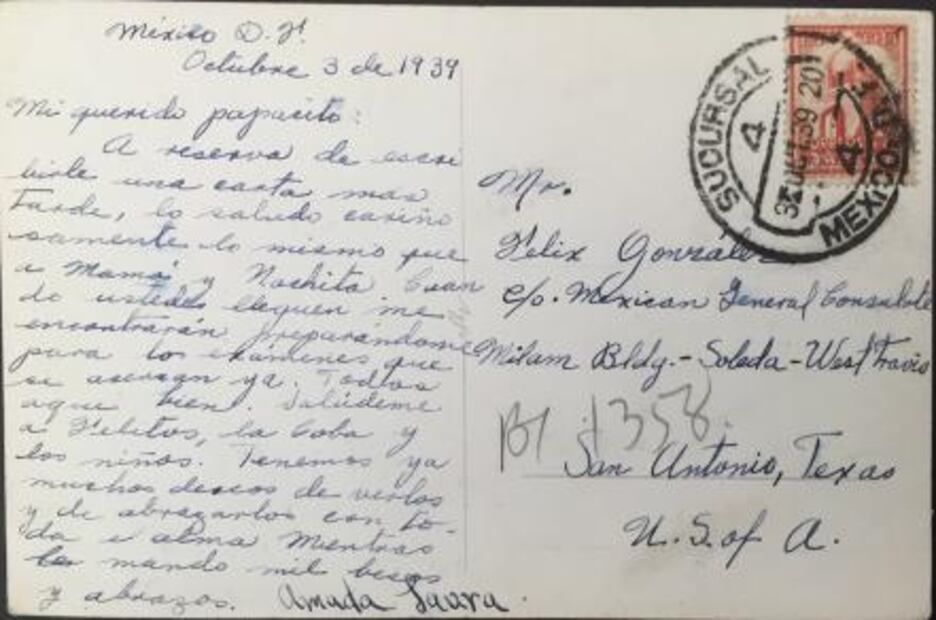 México D. F.
Octubre 3 de 1939
Mi querido papacito:
A reserva de escri
birle una carta mas
tarde, lo saludo cariño
samente lo mismo que
a Mamá y Nachita Cuan
do ustedes lleguen me
encontrarán preparándome
para los exámenes que
se acercan ya. Todos
aqui bien. Salúdeme
a Felitos, la Coba y
los niños. Tenemos ya
muchos deseos de verlos
y de abrazarlos con to-
da el alma Mientras
le mando mil besos
y abrazos. Amada Laura.
SUCURSAL 4
4 MEXICO, D.F.
OCT 39 20
Mr.
Felix Gonzalez
c/o. Mexican General Consulate
Milam Bldg.-Soleda-West Travis
358
San Antonio, Texas
U.S. of A.